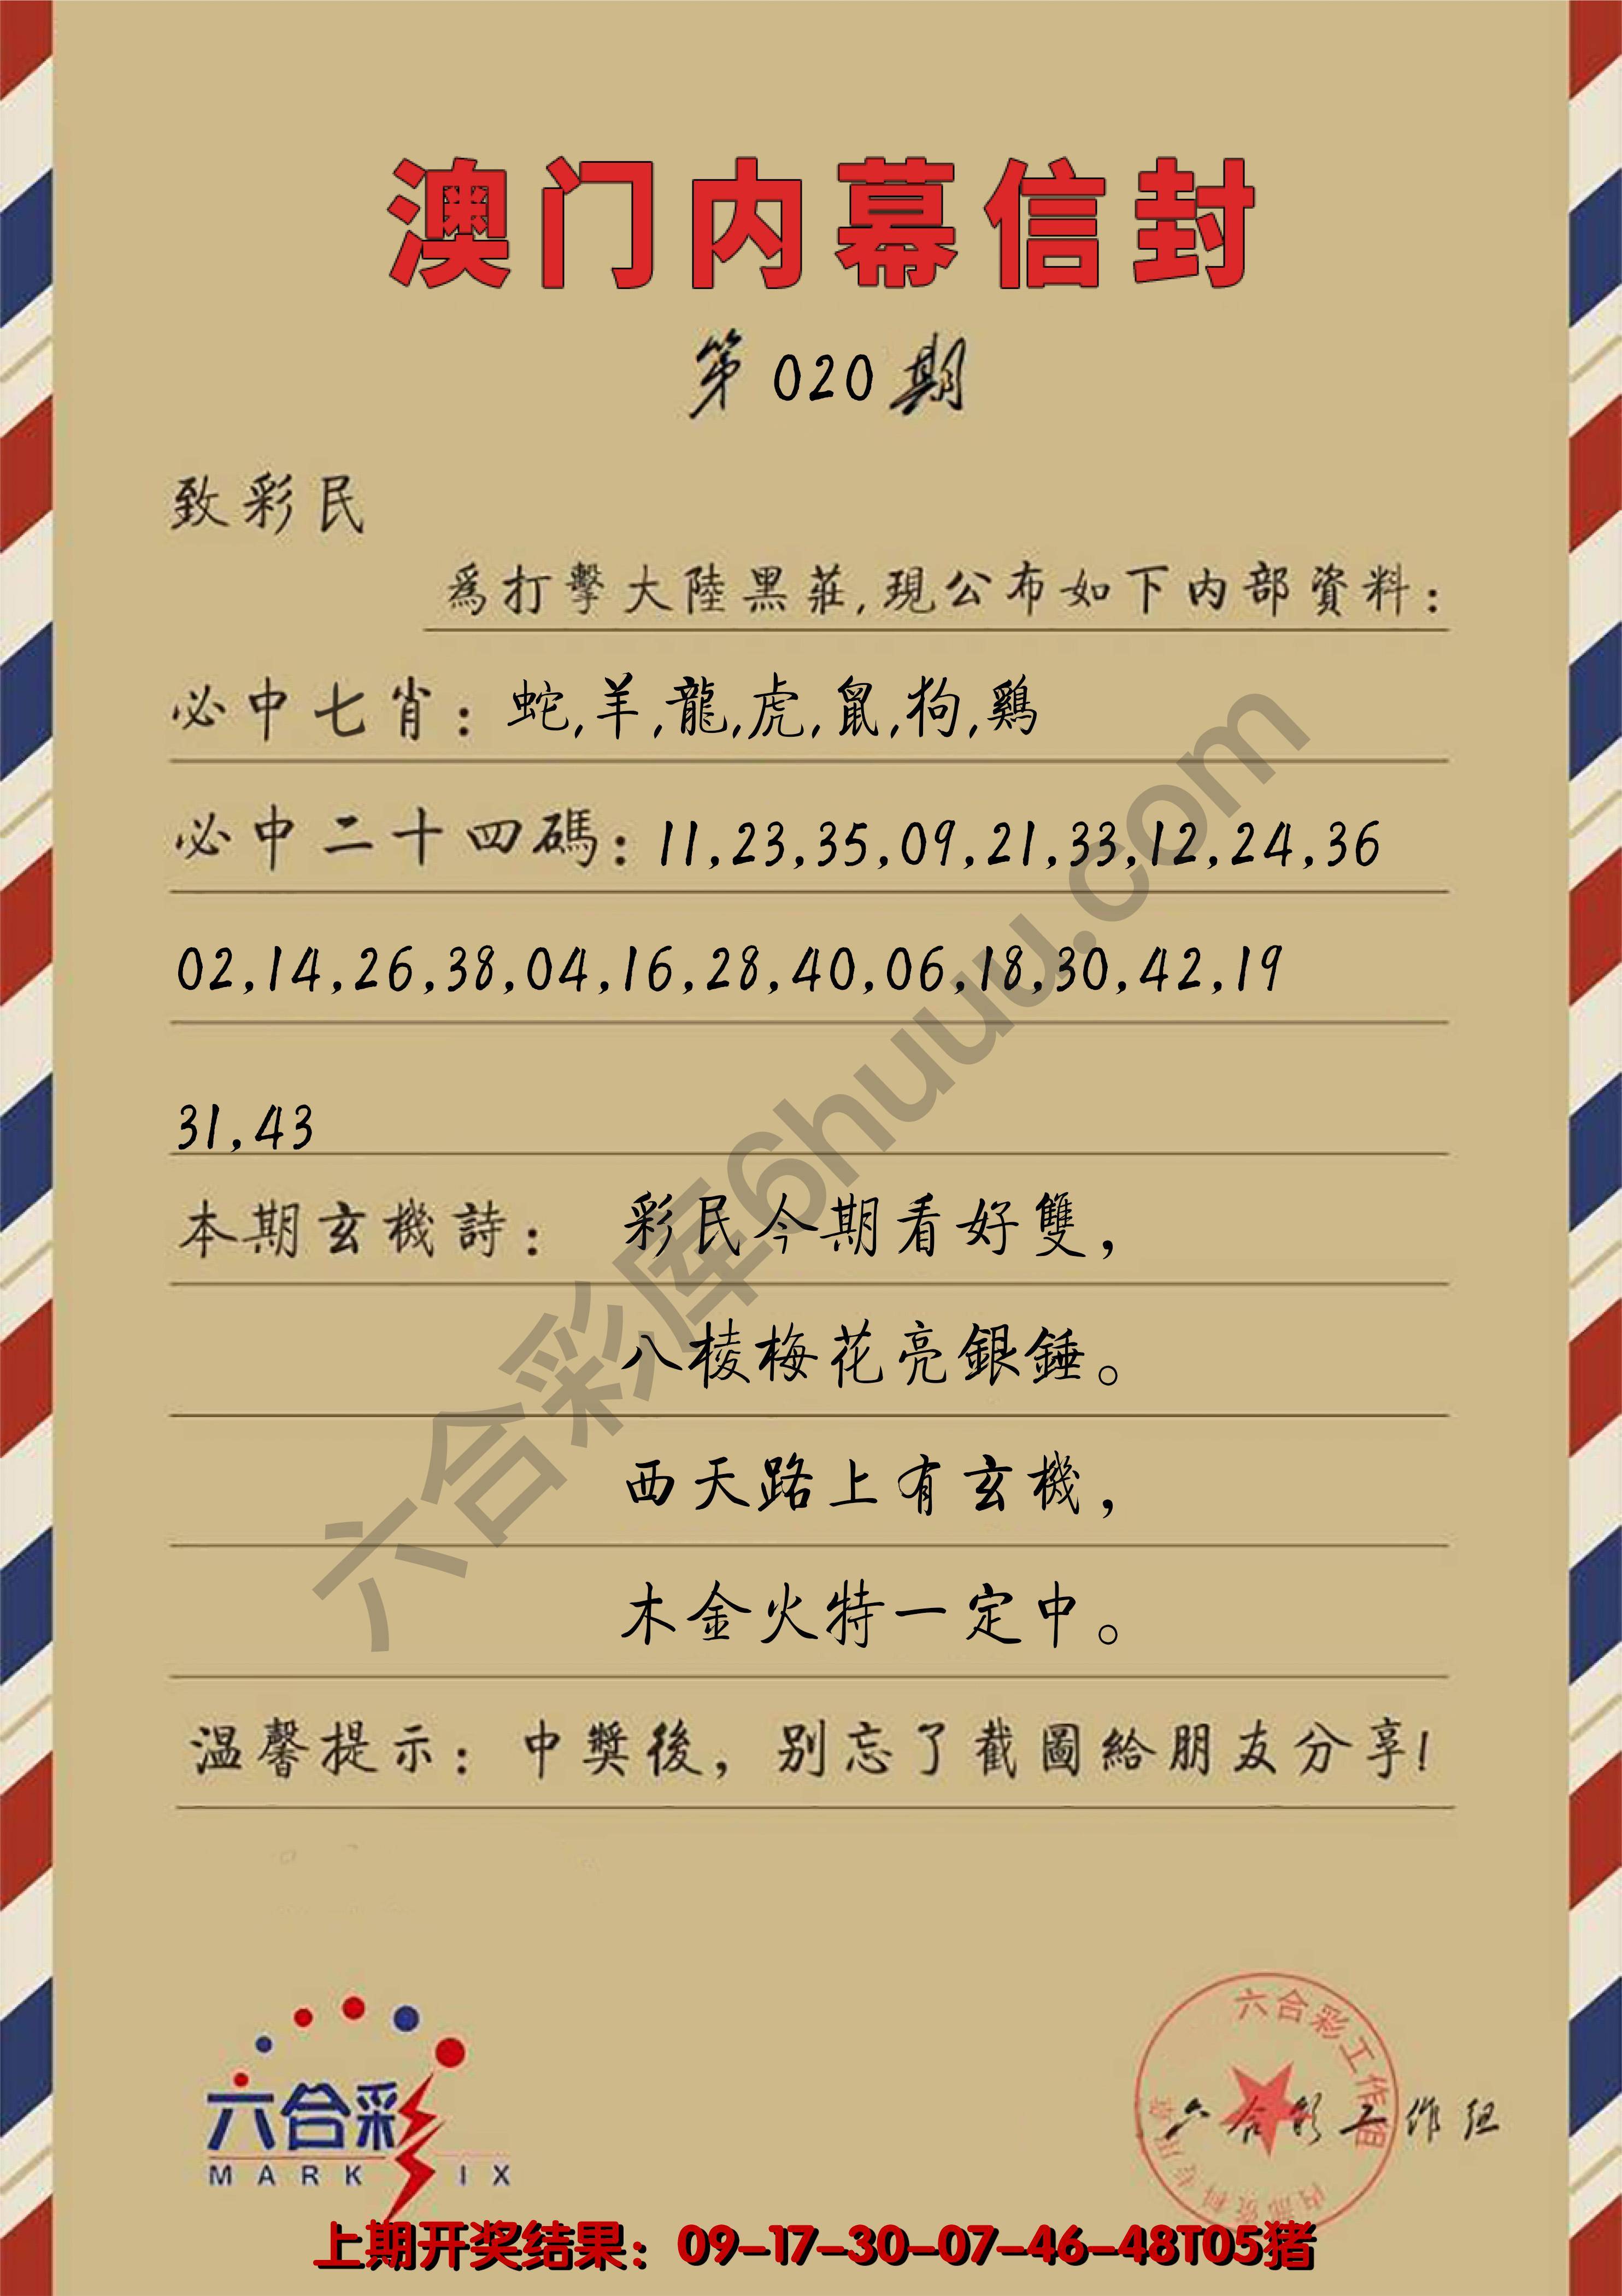 澳门内幕信封
第020期
致彩民
爲打擊大陸黑莊,現公布如下内部資料：
必中七肖：蛇,羊,龍,虎,鼠,狗,鷄
必中二十四碼：11,23,35,09,21,33,12,24,36
02,14,26,38,04,16,28,40,06,18,30,42,19
31,43
本期玄機詩：彩民今期看好雙，
八棱梅花亮銀錘。
西天路上有玄機，
木金火特一定中。
温馨提示：中獎後，别忘了截圖給朋友分享!
六合彩库6huuu.com
六合彩
MARK SIX
六合彩工作组
内部资料专用章
六合彩工作组
上期开奖结果：09-17-30-07-46-48T05猪